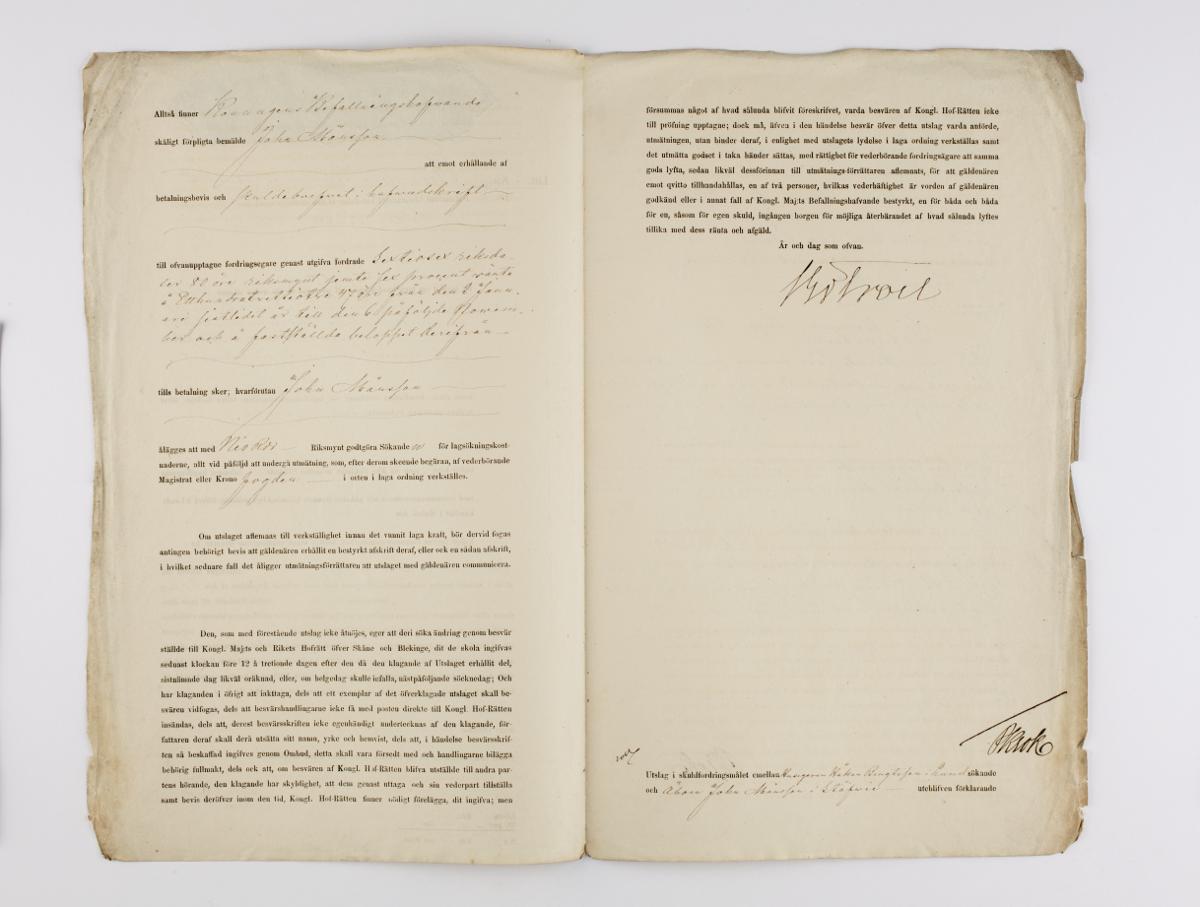 Alltså finner Konungens Befallningshafvande
skäligt förpligta bemälde John Månsson
att emot erhållande af
betalningsbevis och skuldebrefvet i hufvudskrift
till ofvanupptagne fordringsegare genast utgifva fordrade Sextiosex riksda-
ler 80 öre riksmynt jemte sex procent ränta
å Etthundratrettiotre 47 öre från den 2 Janu-
ari sistlidet år till den 6 påföljde Novem-
ber och å fastställda beloppet derifrån
tills betalning sker; hvarförutan John Månsson
ålägges att med Nio Rdr Riksmynt godtgöra Sökanden för lagsökningskost-
naderne, allt vid påföljd att undergå utmätning, som, efter derom skeende begäran, af vederbörande
Magistrat eller Krono fogden i orten i laga ordning verkställes.
Om utslaget aflemnas till verkställighet innan det vunnit laga kraft, bör dervid fogas
antingen behörigt bevis att gäldenären erhållit en bestyrkt afskrift deraf, eller ock en sådan afskrift,
i hvilket sednare fall det åligger utmätningsförrättaren att utslaget med gäldenären communicera.
Den, som med förestående utslag icke åtnöjes, eger att deri söka ändring genom besvär
ställde till Kongl. Maj:ts och Rikets Hofrätt öfver Skåne och Blekinge, dit de skola ingifvas
sednast klockan före 12 å trettionde dagen efter den då den klagande af Utslaget erhållit del,
sistnämnde dag likväl oräknad, eller, om helgedag skulle icfalla, nästpåföljande söcknedag; Och
har klaganden i öfrigt att iakttaga, dels att ett exemplar af det öfverklagade utslaget skall be-
svären vidfogas, dels att besvärshandlingarne icke få med posten direkte till Kongl. Hof-Rätten
insändas, dels att, derest besvärsskriften icke egenhändigt undertecknas af den klagande, för-
fattaren deraf skall derå utsätta sitt namn, yrke och hemvist, dels att, i händelse besvärsskrif-
ten så beskaffad ingifves genom Ombud, detta skall vara försedt med och handlingarne bilägga
behörig fullmakt, dels ock att, om besvären af Kongl. Hof-Rätten blifva utställde till andra par-
tens hörande, den klagande har skyldighet, att dem genast uttaga och sin vederpart tillställa
samt bevis deröfver inom den tid, Kongl. Hof-Rätten finner nödigt förelägga, dit ingifva; men
försummas något af hvad sålunda blifvit föreskrifvet, varda besvären af Kongl. Hof-Rätten icke
till pröfning upptagne; dock må, äfven i den händelse besvär öfver detta utslag varda anförde,
utmätningen, utan hinder deraf, i enlighet med utslagets lydelse i laga ordning verkställas samt
det utmätta godset i taka händer sättas, med rättighet för vederbörande fordringsägare att samma
gods lyfta, sedan likväl dessförinnan till utmätnings-förrättaren aflemnats, för att gäldenären
emot qvitto tillhandahållas, en af två personer, hvilkas vederhäftighet är vorden af gäldenären
godkänd eller i annat fall af Kongl. Maj:ts Befallningshafvande bestyrkt, en för båda och båda
för en, såsom för egen skuld, ingången borgen för möjliga återbärandet af hvad sålunda lyftes
tillika med dess ränta och afgäld.
År och dag som ofvan.
Utslag i skuldfordringsmålet emellan Husaren Håkan Bengtsson i Lund sökande
och Åboen John Månsson i utebliven förklarande